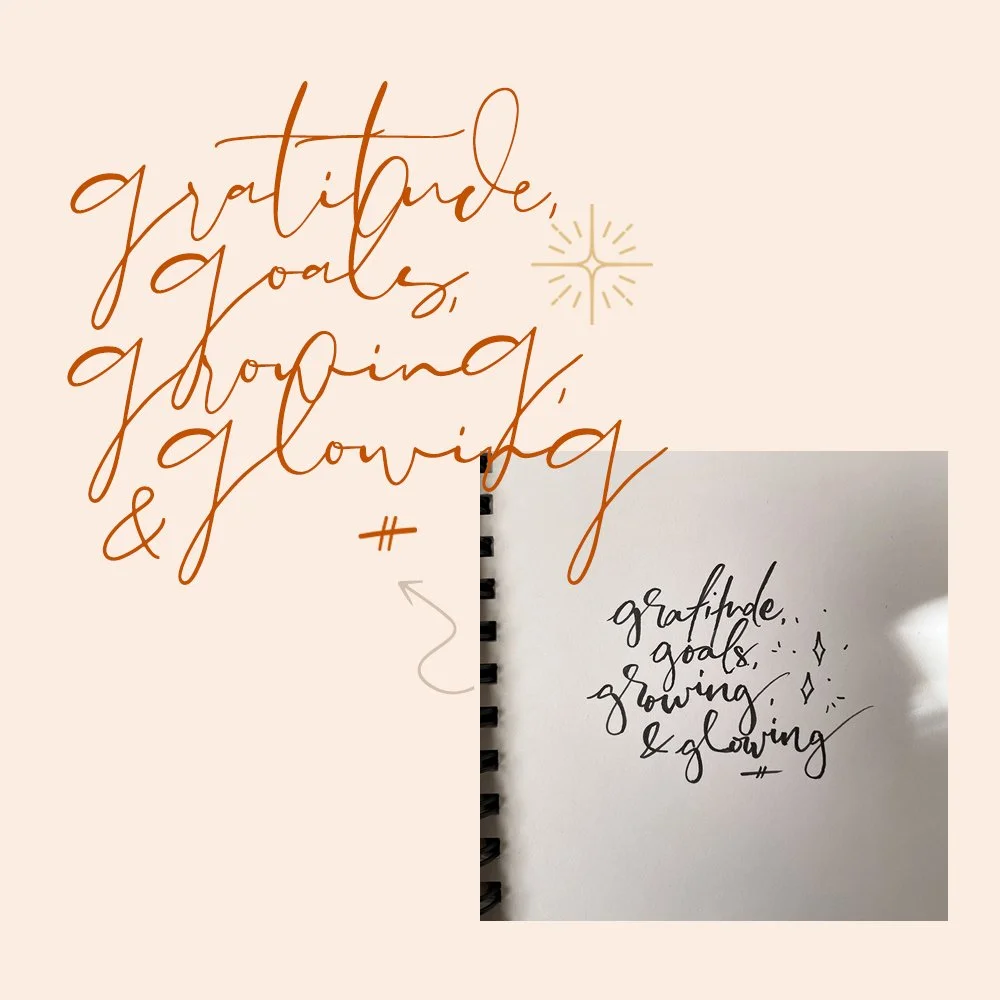 gratitude,
goals,
growing,
& glowing
gratitude,
goals,
growing,
& glowing